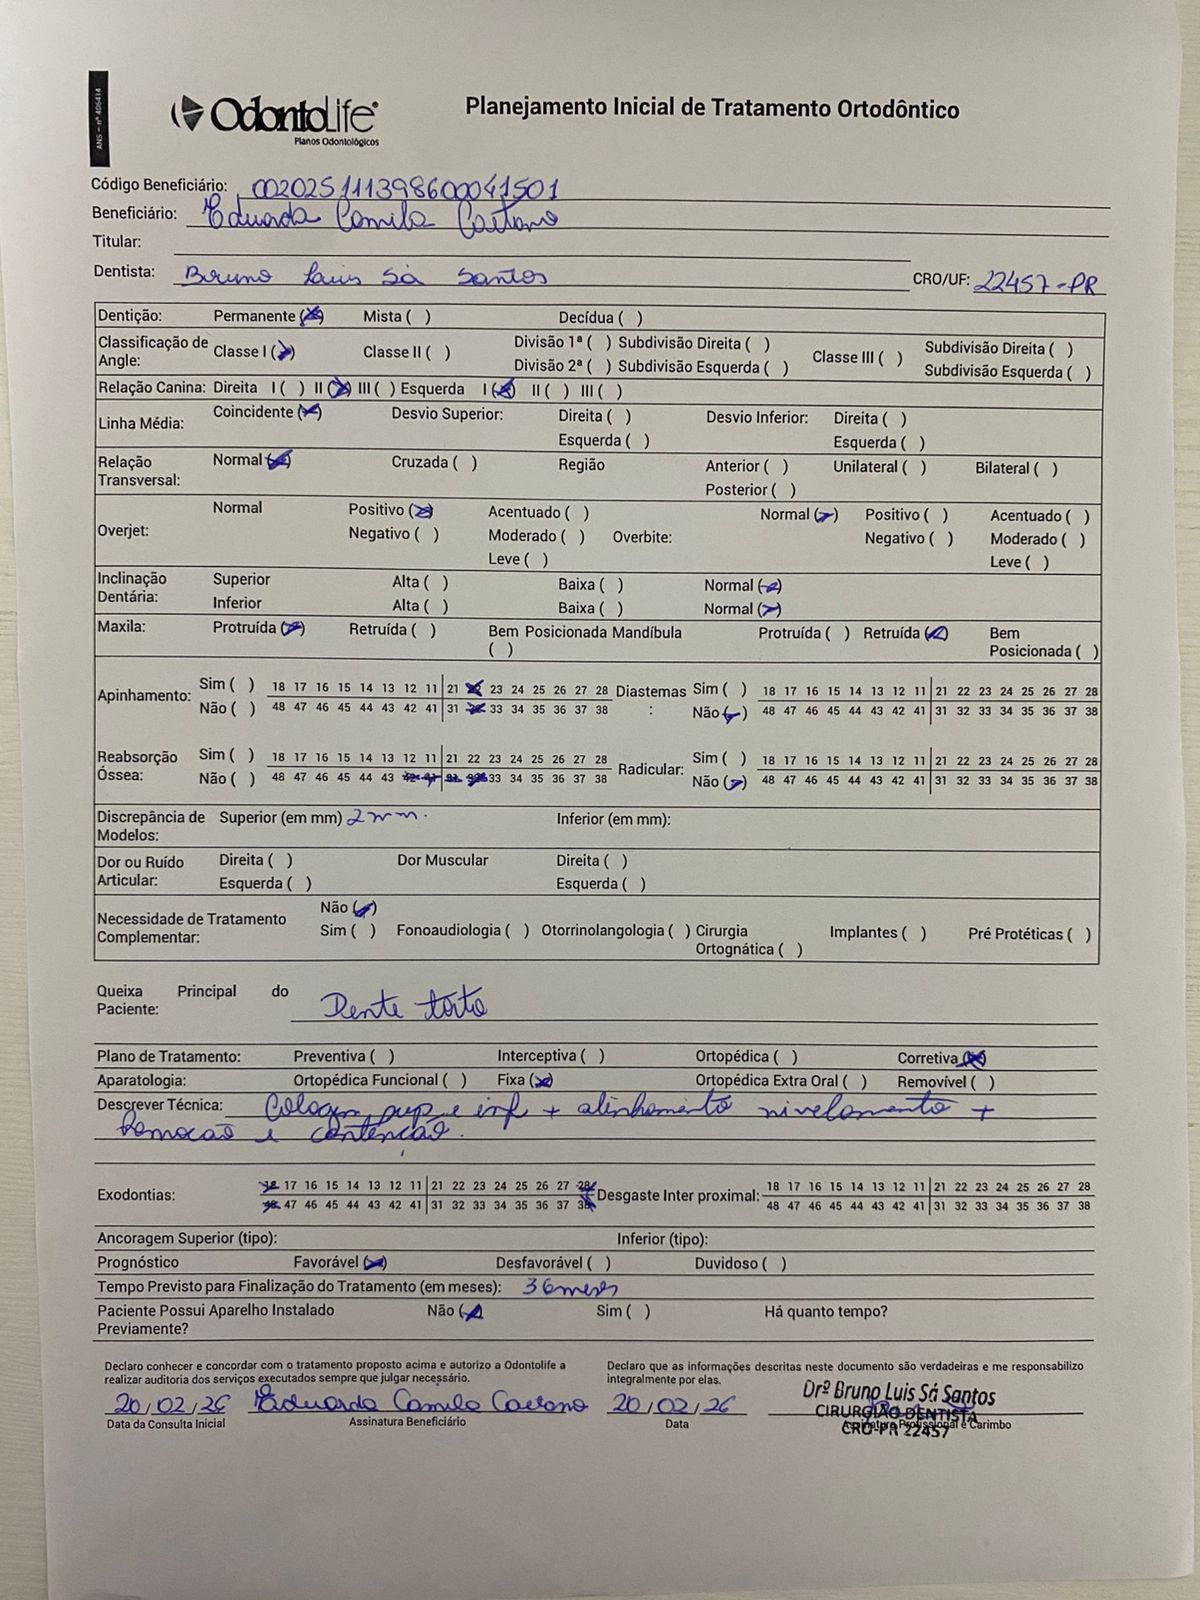 ANS – nº 406414
OdontoLife®
Planos Odontológicos
Planejamento Inicial de Tratamento Ortodôntico
Código Beneficiário: 002025111398600041501
Beneficiário: Eduarda Camila Caetano
Titular:
Dentista: Bruno Luis Sá Santos CRO/UF: 22457-PR
Dentição: Permanente (X) Mista ( ) Decídua ( )
Classificação de Angle: Classe I (X) Classe II ( ) Divisão 1ª ( ) Subdivisão Direita ( ) Divisão 2ª ( ) Subdivisão Esquerda ( ) Classe III ( ) Subdivisão Direita ( ) Subdivisão Esquerda ( )
Relação Canina: Direita I ( ) II (X) III ( ) Esquerda I (X) II ( ) III ( )
Linha Média: Coincidente (X) Desvio Superior: Direita ( ) Desvio Inferior: Direita ( )
Esquerda ( ) Esquerda ( )
Relação Transversal: Normal (X) Cruzada ( ) Região Anterior ( ) Unilateral ( ) Bilateral ( )
Posterior ( )
Overjet: Normal Positivo (X) Acentuado ( ) Overbite: Normal (X) Positivo ( ) Acentuado ( )
Negativo ( ) Moderado ( ) Negativo ( ) Moderado ( )
Leve ( ) Leve ( )
Inclinação Dentária: Superior Alta ( ) Baixa ( ) Normal (X)
Inferior Alta ( ) Baixa ( ) Normal (X)
Maxila: Protruída (X) Retruída ( ) Bem Posicionada ( ) Mandíbula Protruída ( ) Retruída (X) Bem Posicionada ( )
Apinhamento: Sim ( ) 18 17 16 15 14 13 12 11 21 22 23 24 25 26 27 28 Diastemas: Sim ( ) 18 17 16 15 14 13 12 11 21 22 23 24 25 26 27 28
Não ( ) 48 47 46 45 44 43 42 41 31 32 33 34 35 36 37 38 Não (X) 48 47 46 45 44 43 42 41 31 32 33 34 35 36 37 38
Reabsorção Óssea: Sim ( ) 18 17 16 15 14 13 12 11 21 22 23 24 25 26 27 28 Radicular: Sim ( ) 18 17 16 15 14 13 12 11 21 22 23 24 25 26 27 28
Não ( ) 48 47 46 45 44 43 42 41 31 32 33 34 35 36 37 38 Não (X) 48 47 46 45 44 43 42 41 31 32 33 34 35 36 37 38
Discrepância de Modelos: Superior (em mm) 2mm. Inferior (em mm):
Dor ou Ruído Articular: Direita ( ) Dor Muscular Direita ( )
Esquerda ( ) Esquerda ( )
Necessidade de Tratamento Complementar: Não (X)
Sim ( ) Fonoaudiologia ( ) Otorrinolangologia ( ) Cirurgia Ortognática ( ) Implantes ( ) Pré Protéticas ( )
Queixa Principal do Paciente: Dente torto
Plano de Tratamento: Preventiva ( ) Interceptiva ( ) Ortopédica ( ) Corretiva (X)
Aparatologia: Ortopédica Funcional ( ) Fixa (X) Ortopédica Extra Oral ( ) Removível ( )
Descrever Técnica: Colagem sup e inf + alinhamento nivelamento +
Remocao e contenção.
Exodontias: 18 17 16 15 14 13 12 11 21 22 23 24 25 26 27 28 Desgaste Inter proximal: 18 17 16 15 14 13 12 11 21 22 23 24 25 26 27 28
48 47 46 45 44 43 42 41 31 32 33 34 35 36 37 38 48 47 46 45 44 43 42 41 31 32 33 34 35 36 37 38
Ancoragem Superior (tipo): Inferior (tipo):
Prognóstico Favorável (X) Desfavorável ( ) Duvidoso ( )
Tempo Previsto para Finalização do Tratamento (em meses): 36meses
Paciente Possui Aparelho Instalado Previamente? Não (X) Sim ( ) Há quanto tempo?
Declaro conhecer e concordar com o tratamento proposto acima e autorizo a Odontolife a
realizar auditoria dos serviços executados sempre que julgar necessário.
Declaro que as informações descritas neste documento são verdadeiras e me responsabilizo
integralmente por elas.
20/02/26 Eduarda Camila Caetano 20/02/26
Data da Consulta Inicial Assinatura Beneficiário Data Assinatura Profissional e Carimbo
Drº Bruno Luis Sá Santos
CIRURGIÃO DENTISTA
CRO-PR 22457